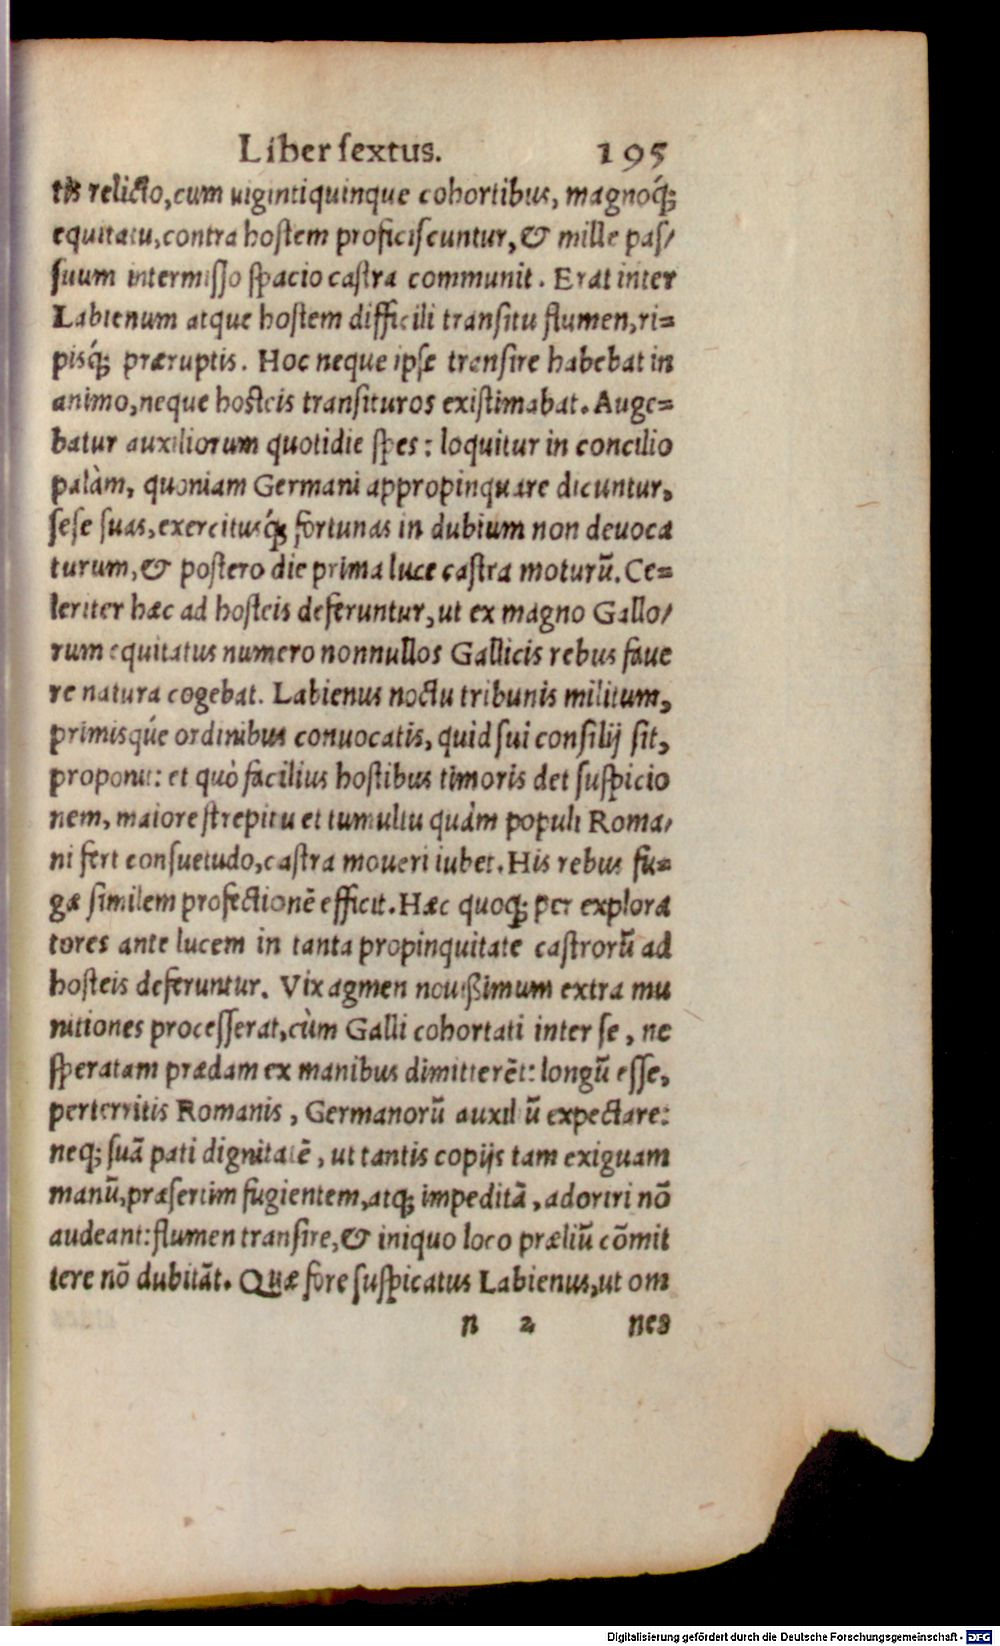 Liber sextus. 195
tis relicto, cum uigintiquinque cohortibus, magnoq́;
equitatu, contra hostem proficiscuntur, & mille pas/
suum intermisso spacio castra communit. Erat inter
Labienum atque hostem difficili transitu flumen, ri=
pisq́; præruptis. Hoc neque ipse transire habebat in
animo, neque hosteis transituros existimabat. Auge=
batur auxiliorum quotidie spes: loquitur in concilio
palàm, quoniam Germani appropinquare dicuntur,
sese suas, exercitusq́; fortunas in dubium non deuoca
turum, & postero die prima luce castra moturū. Ce=
leriter hæc ad hosteis deferuntur, ut ex magno Gallo/
rum equitatus numero nonnullos Gallicis rebus faue
re natura cogebat. Labienus noctu tribunis militum,
primisqúe ordinibus conuocatis, quid sui consilij sit,
proponit: et quò facilius hostibus timoris det suspicio
nem, maiore strepitu et tumultu quàm populi Roma/
ni fert consuetudo, castra moueri iubet. His rebus fu=
gæ similem profectionē efficit. Hæc quoq; per explora
tores ante lucem in tanta propinquitate castrorū ad
hosteis deferuntur. Vix agmen nouißimum extra mu
nitiones processerat, cùm Galli cohortati inter se, ne
speratam prædam ex manibus dimitterēt: longū esse,
perterritis Romanis, Germanorū auxiliū expectare:
neq; suā pati dignitatē, ut tantis copijs tam exiguam
manū, præsertim fugientem, atq; impeditā, adoriri nō
audeant: flumen transire, & iniquo loco præliū cōmit
tere nō dubitāt. Quæ fore suspicatus Labienus, ut om
n 2 nes
Digitalisierung gefördert durch die Deutsche Forschungsgemeinschaft - DFG